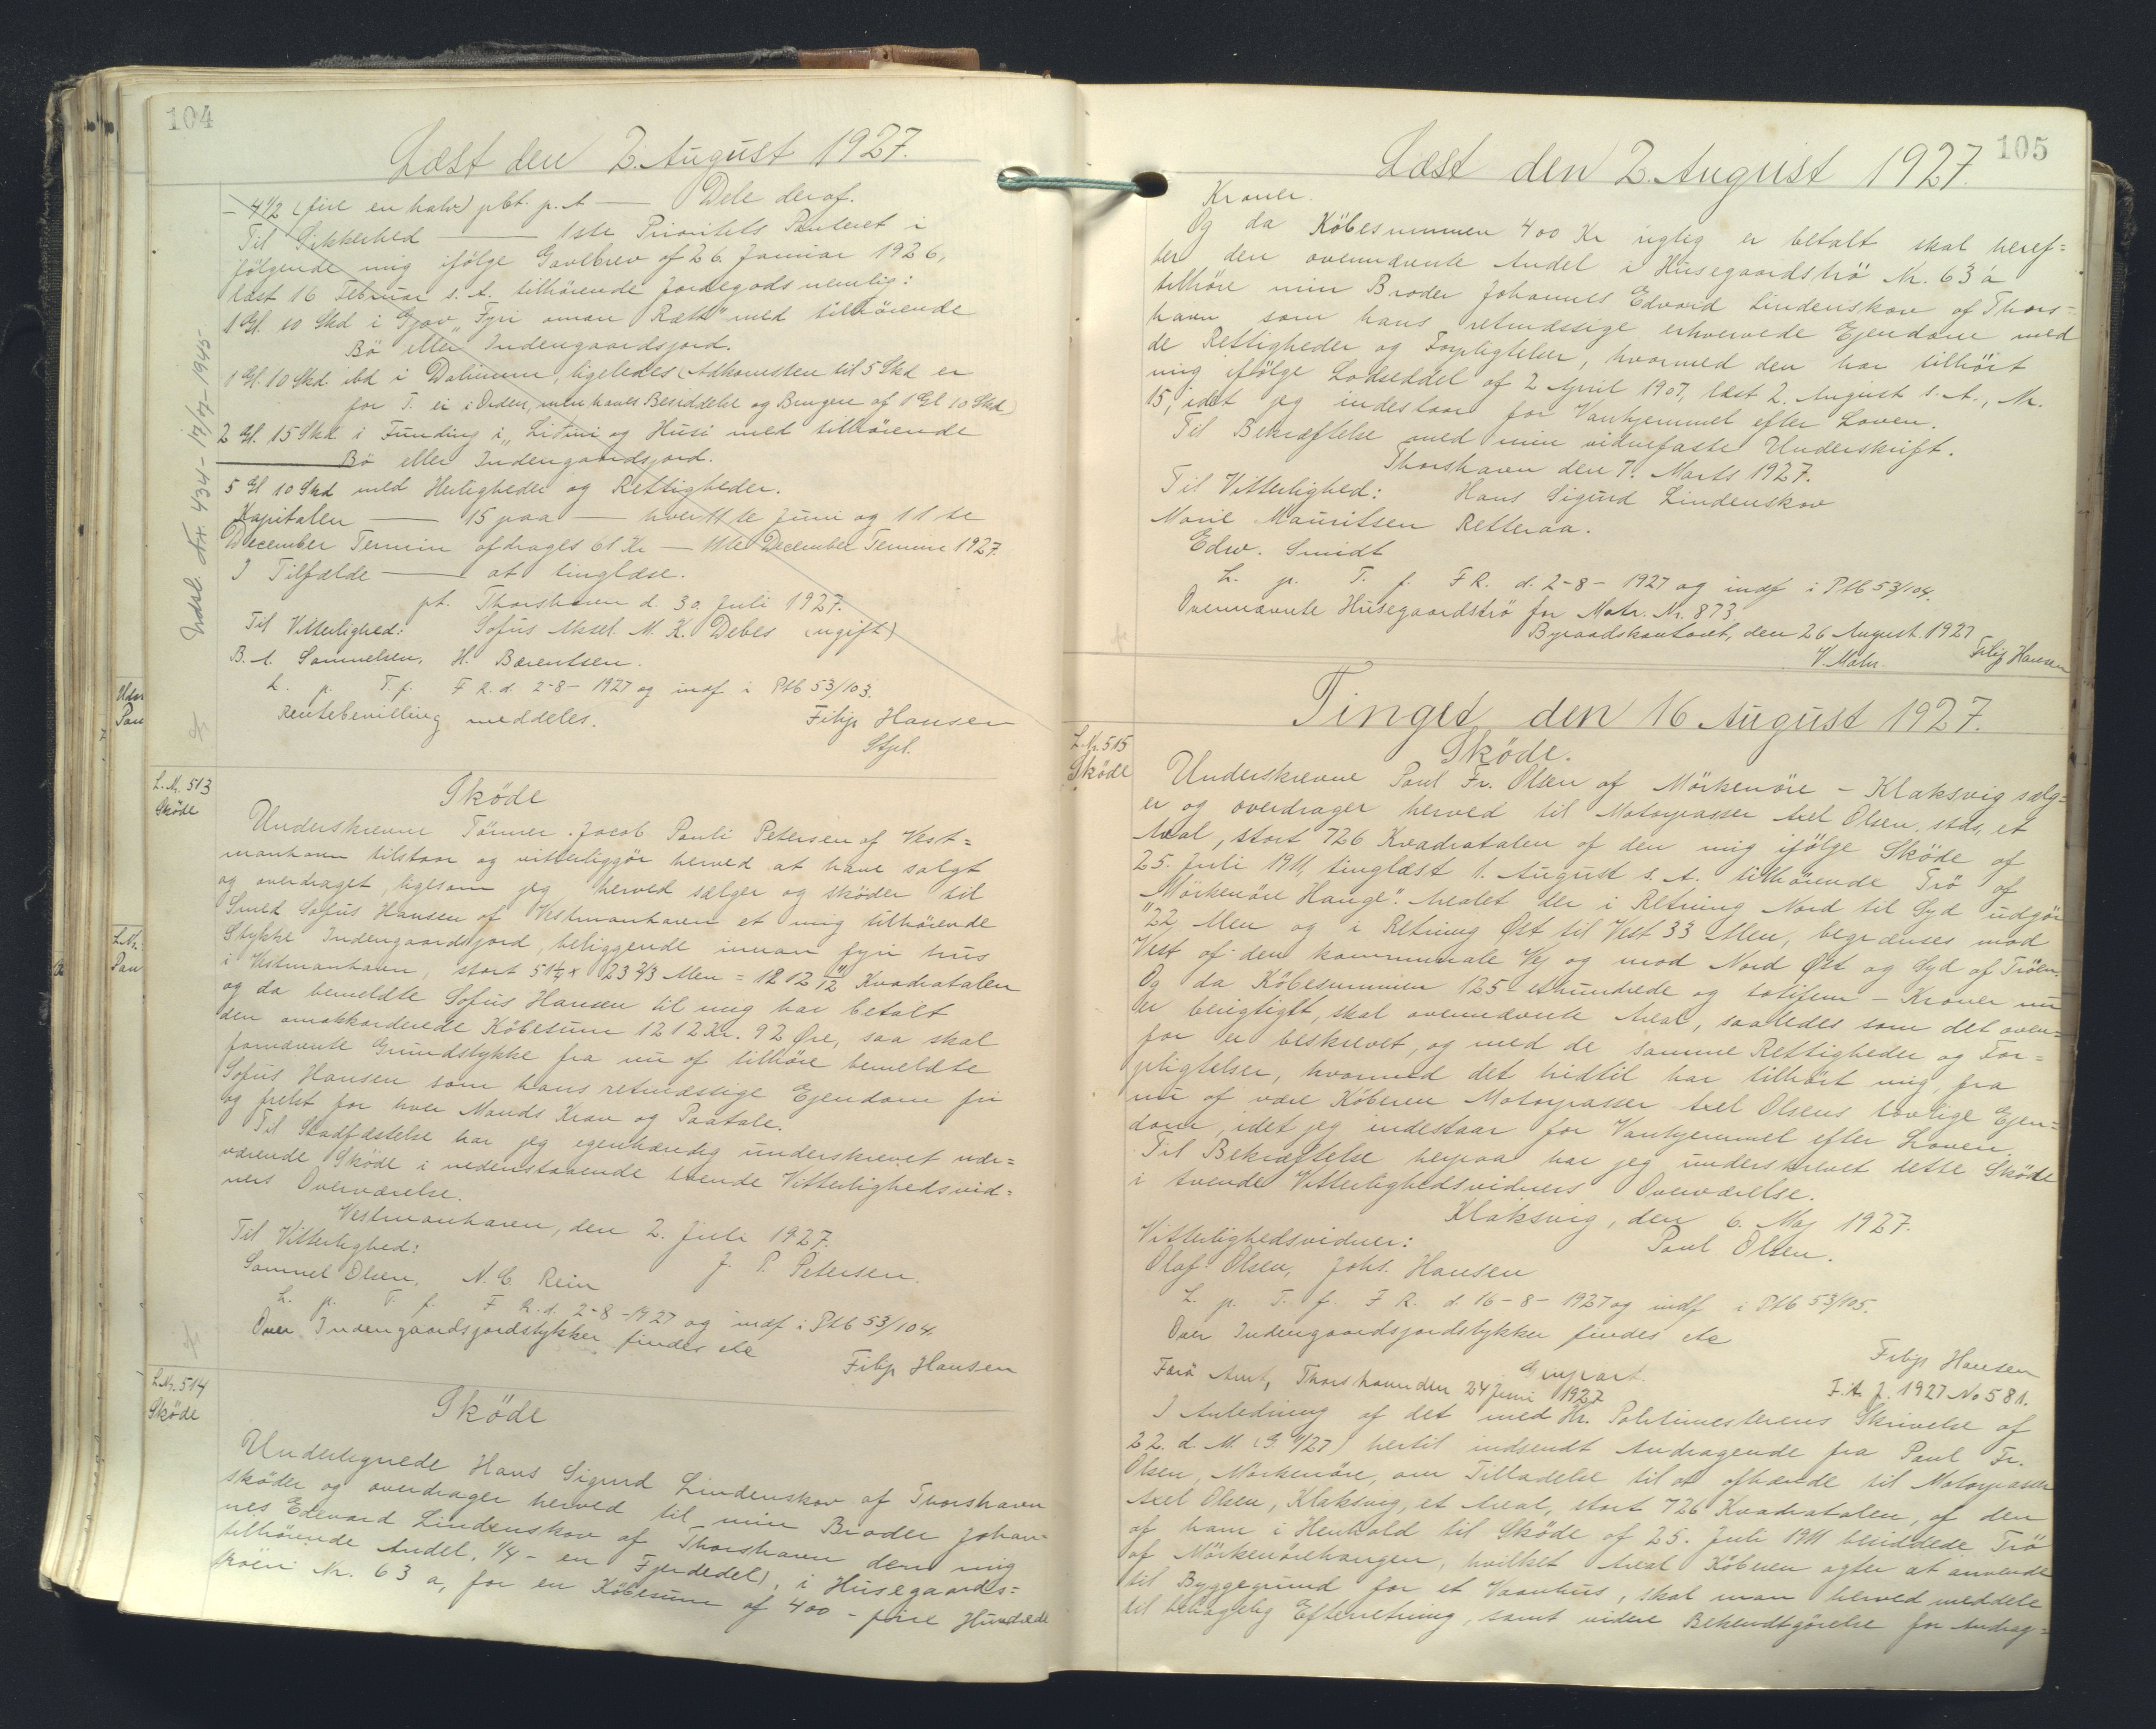 104
Læst den 2. August 1927.
- 4 1/2 (fire en halv) pCt. p. A — Dele deraf.
Til Sikkerhed — 1ste Prioritets Panteret i
følgende mig ifølge Gavebrev af 26. Januar 1926,
læst 16 Februar s. A. tilhørende Jordegods nemlig:
1 Gl. 10 Skd i Gjov "Fyri oman Rætt" med tilhørende
Bö eller Indengaardsjord.
1 Gl. 10 Skd ibd i Dalinum, ligeledes (Adkomsten til 5 Skd er
for T. ei i Orden, men haves Besiddelse og Brugen af 1 Gl 10 Skd)
2 Gl. 15 Skd i Funding i "Lidini og Husi med tilhørende
Bö eller Indengaardsjord.
5 Gl 10 Skd med Herligheder og Rettigheder.
Kapitalen — 15 paa — hver 11te Juni og 11te
December Termin afdrages 61 Kr — 11te December Termin 1927.
I Tilfælde — at tinglæse.
pt. Thorshavn d. 30. Juli 1927.
Til Vitterlighed: Sofus Aksel. M. K. Debes (ugift)
B. A. Samuelsen. H. Bærentsen.
L. p. T. f. F R. d. 2-8-1927 og indf i Ptb 53/103.
Rentebevilling meddeles.
Filip Hansen
Stpl.
Udsl. A.H. 434 - 17/7-1945-
L. Nr. 513
Sköde
Sköde
Underskrevne Tömrer Jacob Pauli Petersen af Vest=
manhavn tilstaar og vitterliggör herved at have solgt
og overdraget, ligesom jeg herved sælger og sköder til
Smed Sofus Hansen af Vestmanhavn et mig tilhörende
Stykke Indengaardsjord, beliggende innan fyri hus
i Vestmanhavn, stort 51 1/4 x 23 2/3 Alen = 1212 11/12 Kvadratalen
og da bemeldte Sofus Hansen til mig har betalt
den omakkorderede Köbesum 1212 Kr. 92 Öre, saa skal
fornævnte Grundstykke fra nu af tilhöre bemeldte
Sofus Hansen som hans retmæssige Ejendom fri
og frelst for hver Mands Krav og Paatale.
Til Stadfæstelse har jeg egenhændig underskrevet nær=
værende Sköde i nedenstaaende tvende Vitterlighedsvid=
ners Overværelse.
Vestmanhavn, den 2. Juli 1927.
Til Vitterlighed: J. P. Petersen.
Samuel Olsen, N. C. Rein
L. p. T. f. F. R. d. 2-8-1927 og indf i Ptb 53/104.
Over Indengaardsjordstykker findes etc
Filip Hansen
L. Nr. 514
Sköde
Sköde
Undertegnede Hans Sigurd Lindenskov af Thorshavn
sköder og overdrager herved til min Broder Johan=
nes Edevard Lindenskov af Thorshavn den mig
tilhörende Andel, 1/4 - en Fjerdedel), i Husegaards=
tröen Nr. 63 a, for en Köbesum af 400 - fire Hundrede
105
Læst den 2. August 1927.
Kroner.
Og da Köbesummen 400 Kr rigtig er betalt skal heref=
ter den ovennævnte Andel i Husegaardströ Nr. 63 a
tilhöre min Broder Johannes Edvard Lindenskov af Thors=
havn som hans retmæssige erhvervede Ejendom med
de Rettigheder og Forpligtelser, hvormed den har tilhört
mig ifölge Lodseddel af 2 April 1907, læst 2. August s. A., Nr.
15, idet jeg indestaar for Vanhjemmel efter Loven.
Til Bekræftelse med min vidnefaste Underskrift.
Thorshavn den 7. Marts 1927.
Til Vitterlighed: Hans Sigurd Lindenskov
Marie Mauritsen Retteraa.
Edw. Smidt
L. p. T. f. F R. d. 2-8-1927 og indf i Ptb 53/104.
Ovennævnte Husegaardströ for Matr. Nr. 873.
Byraadskontoret, den 26 August 1927
V. Mohr. Filip Hansen
Tinget den 16 August 1927.
L. Nr. 515
Sköde
Sköde.
Underskrevne Poul Fr. Olsen af Mörkenöre - Klaksvig sælg=
er og overdrager herved til Motorpasser Axel Olsen, stds, et
Areal, stort 726 Kvadratalen af den mig ifölge Sköde af
25. Juli 1911, tinglæst 1. August s. A. tilhörende Trö af
"Mörkenöre Hauge". Arealet der i Retning Nord til Syd udgör
22 Alen og i Retning Öst til Vest 33 Alen, begrænses mod
Vest af den kommunale Vej og mod Nord Öst og Syd af Tröen.
Og da Köbesummen 125 - ethundrede og totifem - Kroner nu
er berigtiget, skal ovennævnte Areal, saaledes som det oven=
for er beskrevet, og med de samme Rettigheder og For=
pligtelser, hvormed det hidtil har tilhört mig, fra
nu af være Köberen Motorpasser Axel Olsens lovlige Ejen=
dom, idet jeg indestaar for Vanhjemmel efter Loven.
Til Bekræftelse herpaa har jeg underskrevet dette Sköde
i tvende Vitterlighedsvidners Overværelse.
Klaksvig, den 6. Maj 1927.
Vitterlighedsvidner: Poul Olsen.
Olaf Olsen, Johs. Hansen
L. p. T. f. F R. d. 16-8-1927 og indf i Ptb 53/105.
Over Indengaardsjordstykker findes etc
Filip Hansen
Genpart.
Færö Amt, Thorshavn den 24 Juni 1927 F. A. J. 1927 No 581.
I Anledning af det med Hr. Politimesterens Skrivelse af
22. d. M. (G. 11/27) hertil indsendt Andragende fra Poul Fr.
Olsen, Mörkenöre, om Tilladelse til at afhænde til Motorpasser
Axel Olsen, Klaksvig, et Areal, stort 726 Kvadratalen, af den
af ham i Henhold til Sköde af 25. Juli 1911 besiddede Trö
af Mörkenörehaugen, hvilket Areal Köberen agter at anvende
til Byggegrund for et Vaanhus, skal man herved meddele
til behagelig Efterretning, samt videre Bekendtgörelse for Andrag=